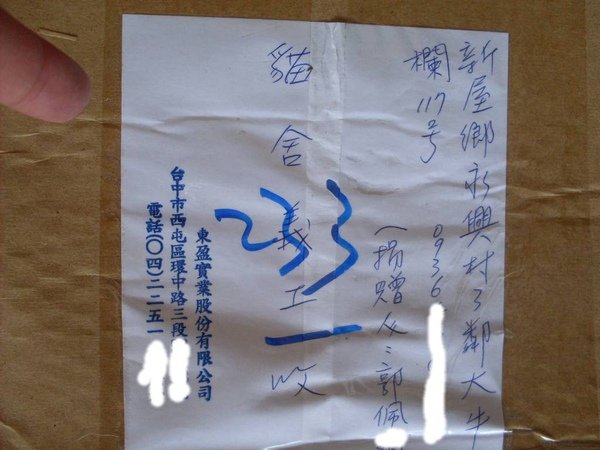 新屋鄉永興村3鄰大牛
欄117号
0936
(捐贈人:郭佩
貓舍義工收
253
東盈實業股份有限公司
台中市西屯區環中路三段
電話(〇四)二二五一